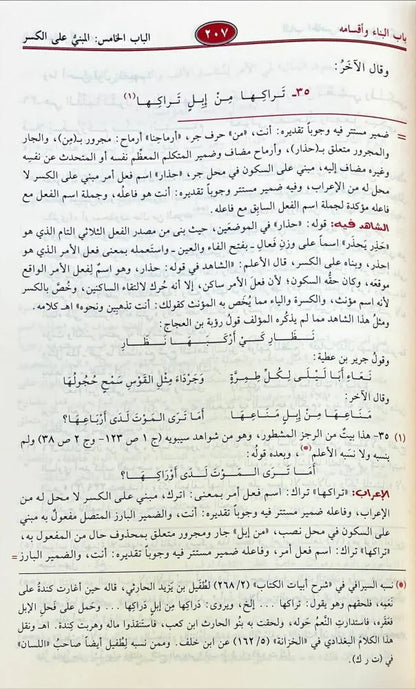 باب البناء وأقسامه ٢٠٧ الباب الخامس: المبنيّ على الكسر
وقال الآخَرُ:
٣٥ـ تَرَاكِهَا مِنْ إِبِلٍ تَرَاكِهَا (١)
= ضمير مستتر فيه وجوباً تقديره: أنت، «من» حرف جر، «أرماحنا» أرماح: مجرور بـ(مِن)، والجار
والمجرور متعلق بـ(حذار)، وأرماح مضاف وضمير المتكلم المعظِّم نفسه أو المتحدث عن نفسِه
وغيره مضاف إليه، مبني على السكون في محل جر، «حذار» اسم فعل أمر مبني على الكسر لا
محل له من الإعراب، وفيه ضمير مستتر وجوباً تقديره: أنت هو فاعلُه، وجملة اسم الفعل مع
فاعله مؤكدة لجملة اسم الفعل السابق مع فاعله.
الشاهد فيه: قوله: «حذار» في الموضعَين، حيث بنى من مصدر الفعل الثلاثي التام الذي هو
«حَذِر يَحذَر» اسماً على وزنِ فَعالِ ـ بفتح الفاء والعين ـ واستَعمله بمعنى فعل الأمر الذي هو
احذر، وبناه على الكسر، قال الأعلم: «الشاهد في قوله: حذارِ، وهو اسمٌ لفعل الأمر الواقع
موقعَه، وكان حقُّه السكون؛ لأن فعل الأمر ساكن، إلا أنه حُرك لالتقاء الساكنين، وخُصّ بالكسر
لأنه اسم مؤنث، والكسرة والياء مما يُخَص به المؤنث كقولك: أنت تذهبِين ونحوه» اهـ كلامه.
ومثلُ هذا الشاهد مما لم يذكُره المؤلف قولُ رؤبة بن العجاج:
نَــظَــارِ كَــيْ أَرْكَــبَــهَــا نَــظَــارِ
وقولُ جرير بن عطية:
نَعَاءِ أَبَا لَيْلَى لِكُلِّ طِمِرَّةٍ وَجَرْدَاءَ مِثْلِ القَوْسِ سَمْحٍ حُجُولُهَا
وقال الآخر:
مَنَاعِهَا مِنْ إِبِلٍ مَنَاعِهَا أَمَا تَرَى المَوْتَ لَدَى أَرْبَاعِهَا؟
(١) ٣٥- هذا بيتٌ من الرجز المشطور، وهو من شواهد سيبويه (ج ١ ص ١٢٣- وج ٢ ص ٣٨) ولم
ينسبه ولا نَسَبه الأعلم(*)، وبعده قولُه:
أَمَـا تَـرَى الـمَـوْتَ لَـدَى أَوْرَاكِـهَـا؟
الإعراب: «تراكها» تراك: اسم فعل أمر بمعنى: اترك، مبني على الكسر لا محل له من
الإعراب، وفاعله ضمير مستتر فيه وجوباً تقديره: أنت، والضمير البارز المتصل مفعولٌ به مبني
على السكون في محل نصب، «من إبل» جار ومجرور متعلق بمحذوف حال من المفعول به،
«تراكها» تراك: اسم فعل أمر، وفاعله ضمير مستتر فيه وجوباً تقديره: أنت، والضمير البارز =
(*) نسبه السيرافي في «شرح أبيات الكتاب» (٢/ ٢٦٨) لطُفَيل بن يَزيدَ الحارثي، قاله حين أغارت كِندة على
نَعَمِه، فلحقهم وهو يقول: تراكها ... إلخ، ويروى: دَراكِها مِن إبلٍ دَراكِها ... وحَمل على فحل الإبل
فعقَره، فاستدارتِ النَّعَمُ حَولَه، ولَحقت به بنُو الحارث ابن كعب، فاستَنقذوا مالَه وهربت كِندة. اهـ ونقل
هذا الكلامَ البغدادي في «الخزانة» (٥/ ١٦٢) عن ابن خلف. وممن نسبه لطُفيل أيضاً صاحبُ «اللسان»
في (ت ر ك).